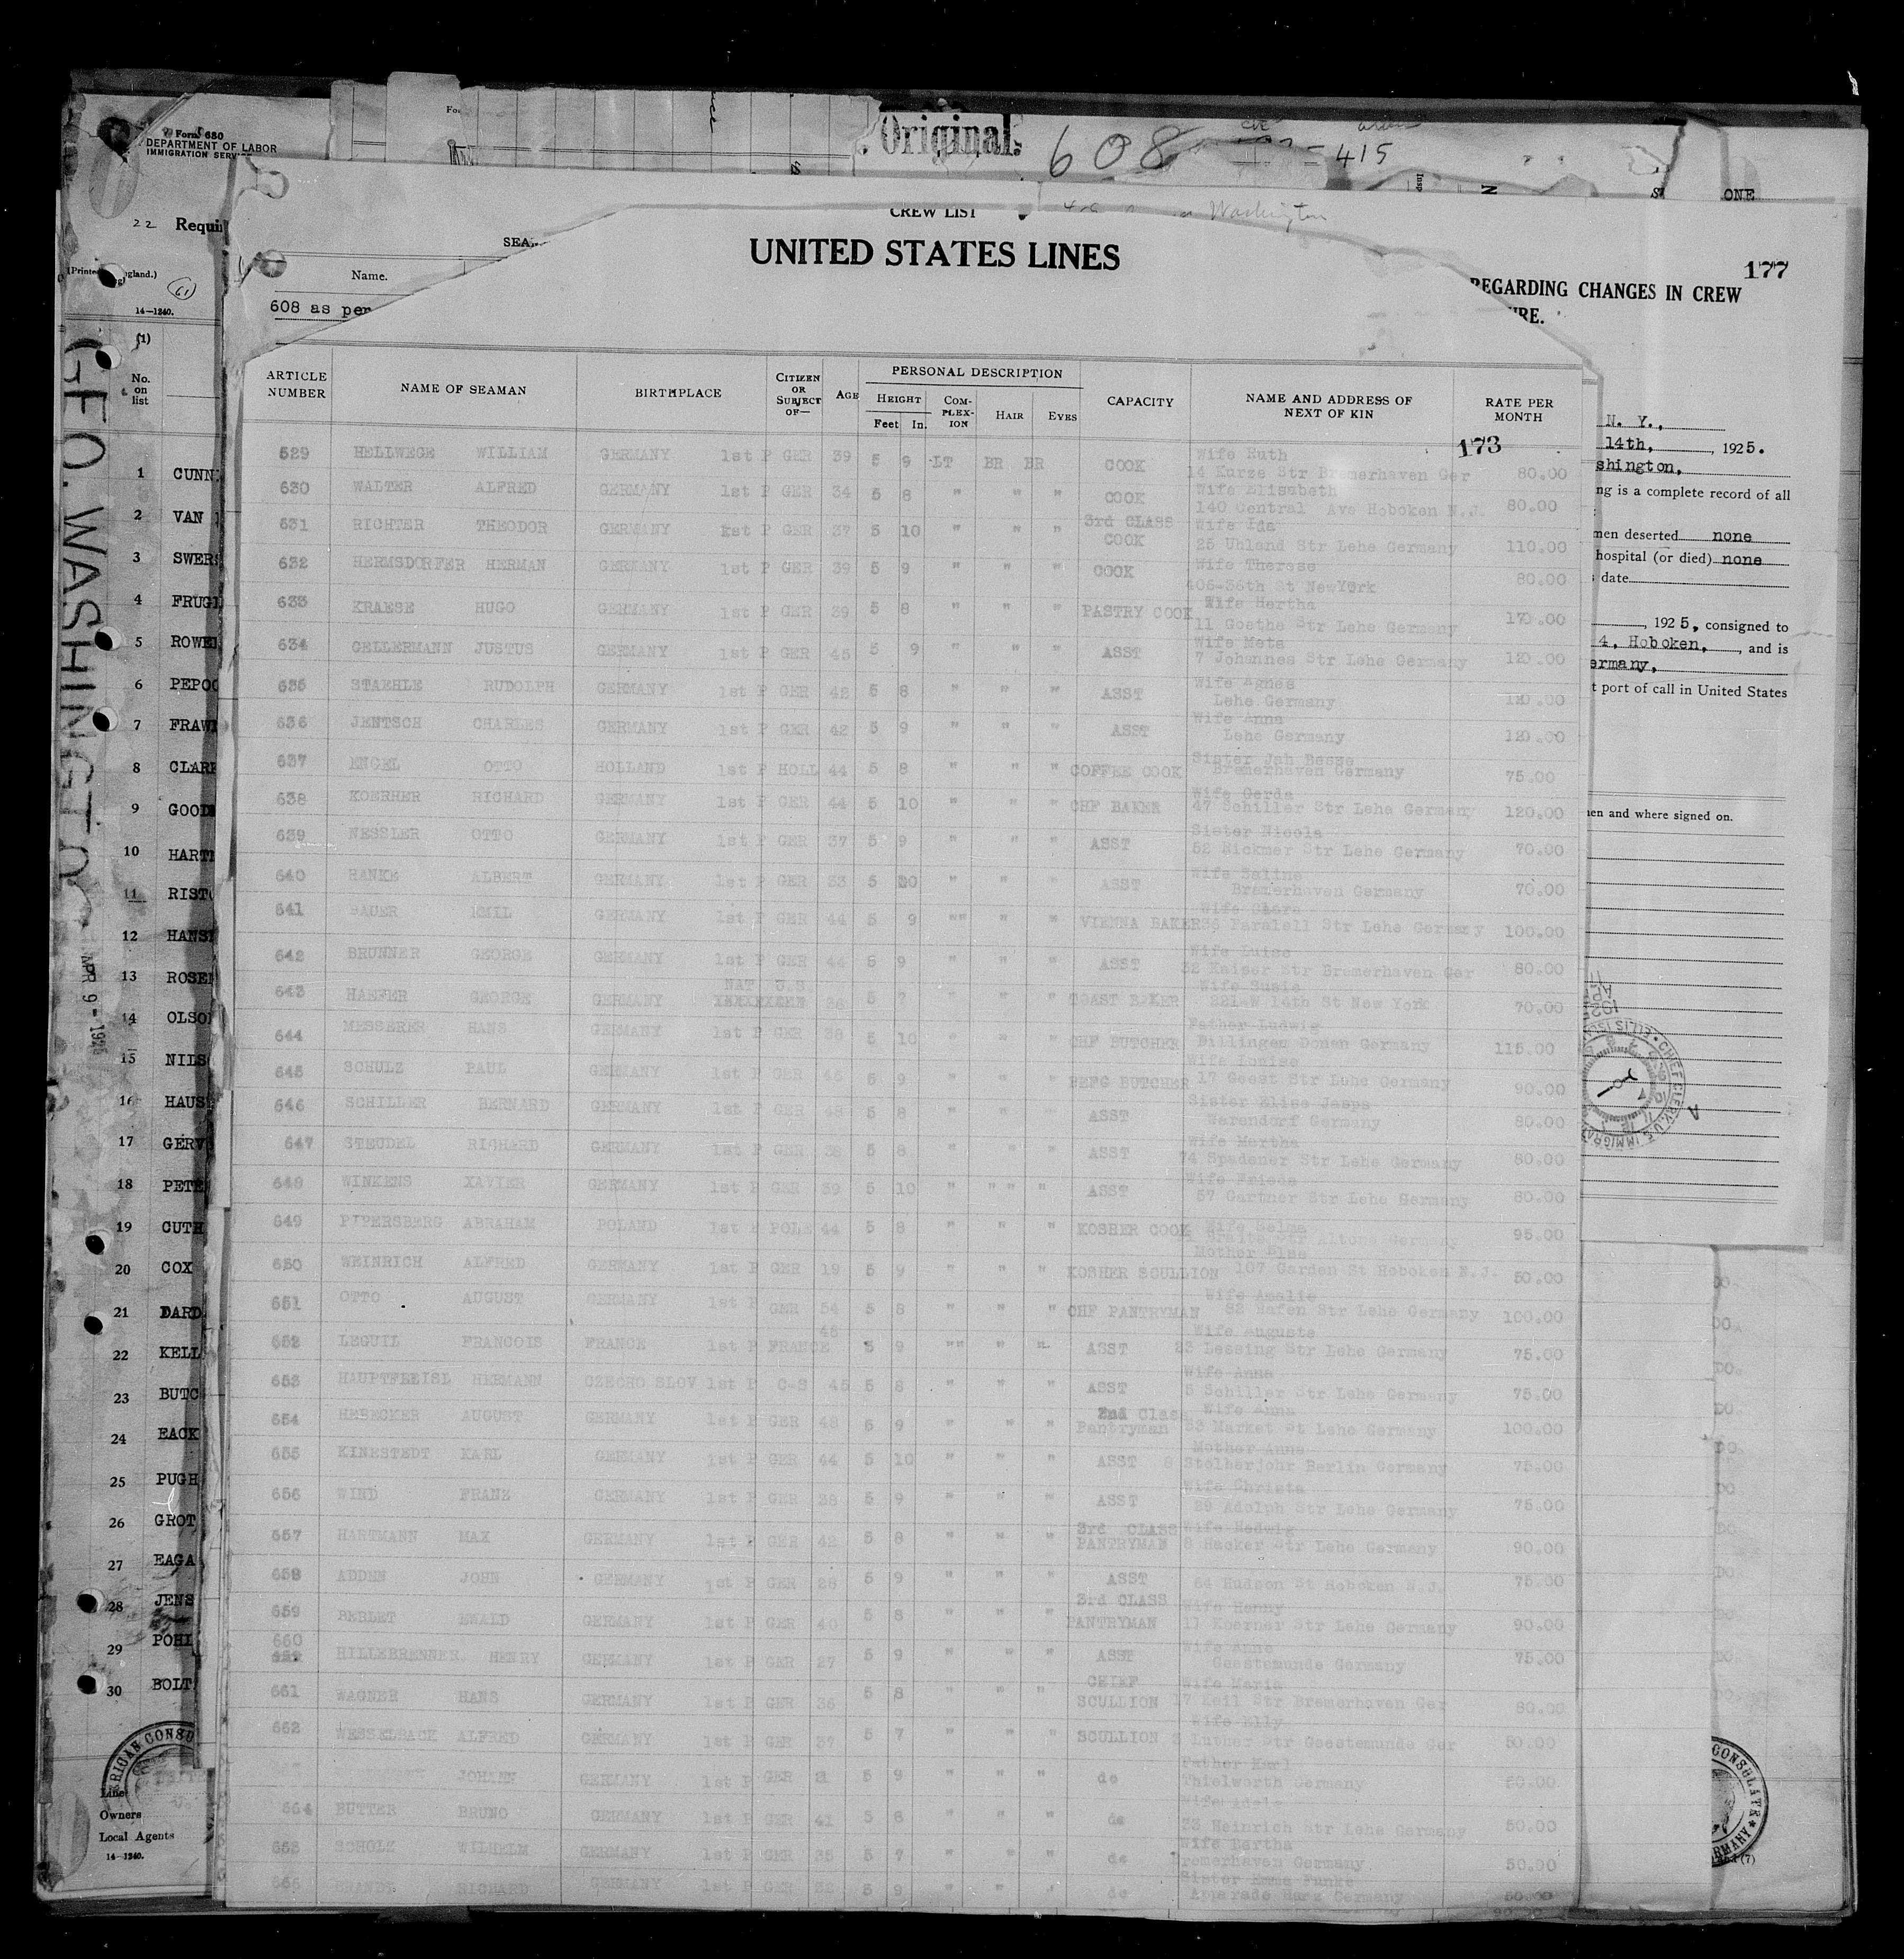 Form 680
DEPARTMENT OF LABOR
IMMIGRATION
Original
608
415
ONE
22
(61)
14-1240.
(1)
No.
on
list
GEO. WASHINGTON
APR 9 - 1925
1 CUNN
2 VAN
3 SWERS
4 FRUG
5 ROWE
6 PEPO
7 FRAW
8 CLAR
9 GOOD
10 HART
11 RIST
12 HANS
13 ROSE
14 OLSO
15 NILS
16 HAUS
17 GERV
18 PETE
19 CUTH
20 COX
21 DARD
22 KELL
23 BUTC
24 EACK
25 PUGH
26 GROT
27 EAGA
28 JENS
29 POHL
30 BOLT
Line
Owners
Local Agents
14-1240.
CREW LIST
Washington
UNITED STATES LINES
Name.
608 as per
177
REGARDING CHANGES IN CREW
N. Y.,
14th, , 1925.
shington,
ng is a complete record of all
men deserted none
hospital (or died) none
date
, 1925, consigned to
4, Hoboken, , and is
ermany,
t port of call in United States
en and where signed on.
173
ARTICLE NUMBER NAME OF SEAMAN BIRTHPLACE CITIZEN OR SUBJECT OF— AGE PERSONAL DESCRIPTION CAPACITY NAME AND ADDRESS OF NEXT OF KIN RATE PER MONTH
HEIGHT COM-PLEX-ION HAIR EYES
Feet In.
529 HELLWEGE WILLIAM GERMANY 1st P GER 39 5 9 LT BR BR COOK Wife Ruth 14 Kurze Str Bremerhaven Ger 80.00
630 WALTER ALFRED GERMANY 1st P GER 34 5 8 " " " COOK Wife Elisabeth 140 Central Ave Hoboken N.J. 80.00
631 RICHTER THEODOR GERMANY 1st P GER 37 5 10 " " " 3rd CLASS COOK Wife Ida 25 Uhland Str Lehe Germany 110.00
632 HERMSDORFER HERMAN GERMANY 1st P GER 39 5 9 " " " COOK Wife Therese 406-36th St NewYork 80.00
633 KRAESE HUGO GERMANY 1st P GER 39 5 8 " " " PASTRY COOK Wife Hertha 11 Goethe Str Lehe Germany 170.00
634 GELLERMANN JUSTUS GERMANY 1st P GER 45 5 9 " " " ASST Wife Meta 7 Johannes Str Lehe Germany 120.00
635 STAEHLE RUDOLPH GERMANY 1st P GER 42 5 8 " " " ASST Wife Agnes Lehe Germany 120.00
636 JENTSCH CHARLES GERMANY 1st P GER 42 5 9 " " ASST Wife Anna Lehe Germany 120.00
637 ENGEL OTTO HOLLAND 1st P HOLL 44 5 8 " " " COFFEE COOK Sister Bremerhaven Germany 75.00
638 KOERHER RICHARD GERMANY 1st P GER 44 5 10 " " " CHF BAKER Wife Gerda 47 Schiller Str Lehe Germany 120.00
639 NESSLER OTTO GERMANY 1st P GER 37 5 9 " " " ASST Sister Nicola 52 Rickmer Str Lehe Germany 70.00
640 HANKE ALBERT GERMANY 1st P GER 33 5 10 " " " ASST Wife Bremerhaven Germany 70.00
641 BAUER EMIL GERMANY 1st P GER 44 5 9 "" " " VIENNA BAKER Wife Clara 36 Paralell Str Lehe Germany 100.00
642 BRUNNER GEORGE GERMANY 1st P GER 44 5 9 " " " ASST Wife Luise 32 Kaiser Str Bremerhaven Ger 80.00
643 HAEFER GEORGE GERMANY NAT U.S. 36 5 7 " " " TOAST BAKER Wife Susie 221-W 14th St New York 70.00
644 MESSERER HANS GERMANY 1st P GER 38 5 10 " " " CHF BUTCHER Father Ludwig Dillingen Donau Germany 115.00
645 SCHULZ PAUL GERMANY 1st P GER 46 5 9 " " " BUTCHER Wife Louise 17 Geest Str Lehe Germany 90.00
646 SCHILLER BERNARD GERMANY 1st P GER 48 5 8 " " ASST Sister Elise Germany 80.00
647 STEUDEL RICHARD GERMANY 1st P GER 38 5 8 " " " ASST Wife Martha 74 Spadener Str Lehe Germany 80.00
648 WINKENS XAVIER GERMANY 1st P GER 39 5 10 " " " " ASST Wife Frieda 57 Gartner Str Lehe Germany 80.00
649 PIPERSBERG ABRAHAM POLAND 1st P POLE 44 5 8 " " " KOSHER COOK Wife Selma Altona Germany 95.00
650 WEINRICH ALFRED GERMANY 1st P GER 19 5 9 " " " KOSHER SCULLION Mother Else 107 Garden St Hoboken N.J. 50.00
651 OTTO AUGUST GERMANY 1st P GER 54 5 8 " " " CHF PANTRYMAN Wife Amalie 82 Hafen Str Lehe Germany 100.00
652 LEGUIL FRANCOIS FRANCE 1st P FRANCE 46 5 9 "" " " ASST Wife Auguste 23 Lessing Str Lehe Germany 75.00
653 HAUPTFLEISL HERMANN CZECHO SLOV 1st P C-S 45 5 8 " " " ASST Wife Anna 5 Schiller Str Lehe Germany 75.00
654 HEBECKER AUGUST GERMANY 1st P GER 48 5 9 " " " 2nd Class Pantryman Wife Anna 53 Market St Lehe Germany 100.00
655 KINESTEDT KARL GERMANY 1st P GER 44 5 10 " " " ASST Mother Anna 8 Berlin Germany 75.00
656 WIND FRANZ GERMANY 1st P GER 38 5 9 " " " ASST Wife Christa 29 Adolph Str Lehe Germany 75.00
657 HARTMANN MAX GERMANY 1st P GER 42 5 8 " " " 3rd CLASS PANTRYMAN Wife Hedwig 8 Hacker Str Lehe Germany 90.00
658 ADDEN JOHN GERMANY 1st P GER 28 5 9 " " " ASST 64 Hudson St Hoboken N.J. 75.00
659 BERLET EWALD GERMANY 1st P GER 40 5 8 " " " 3rd CLASS PANTRYMAN Wife Henny 17 Koerner Str Lehe Germany 90.00
660 HILLEBRENNER HENRY GERMANY 1st P GER 27 5 9 " " " ASST Wife Anne Geestemunde Germany 75.00
661 WAGNER HANS GERMANY 1st P GER 36 5 8 " " " CHIEF SCULLION Wife Maria 17 Keil Str Bremerhaven Ger 80.00
662 WESSELBACK ALFRED GERMANY 1st P GER 37 5 7 " " " SCULLION Wife Elly Luther Str Geestemunde Ger 50.00
JOHANN GERMANY 1st P GER 21 5 9 " " " do Father Karl Thielworth Germany 50.00
664 BUTTER BRUNO GERMANY 1st P GER 41 5 8 " " " do Wife Adele 33 Heinrich Str Lehe Germany 50.00
665 SCHOLZ WILHELM GERMANY 1st P GER 35 5 7 " " " do Wife Bertha Bremerhaven Germany 50.00
666 BRANDT RICHARD GERMANY 1st P GER 32 5 9 " " " do Sister Emma Funke Harz Germany 50.00